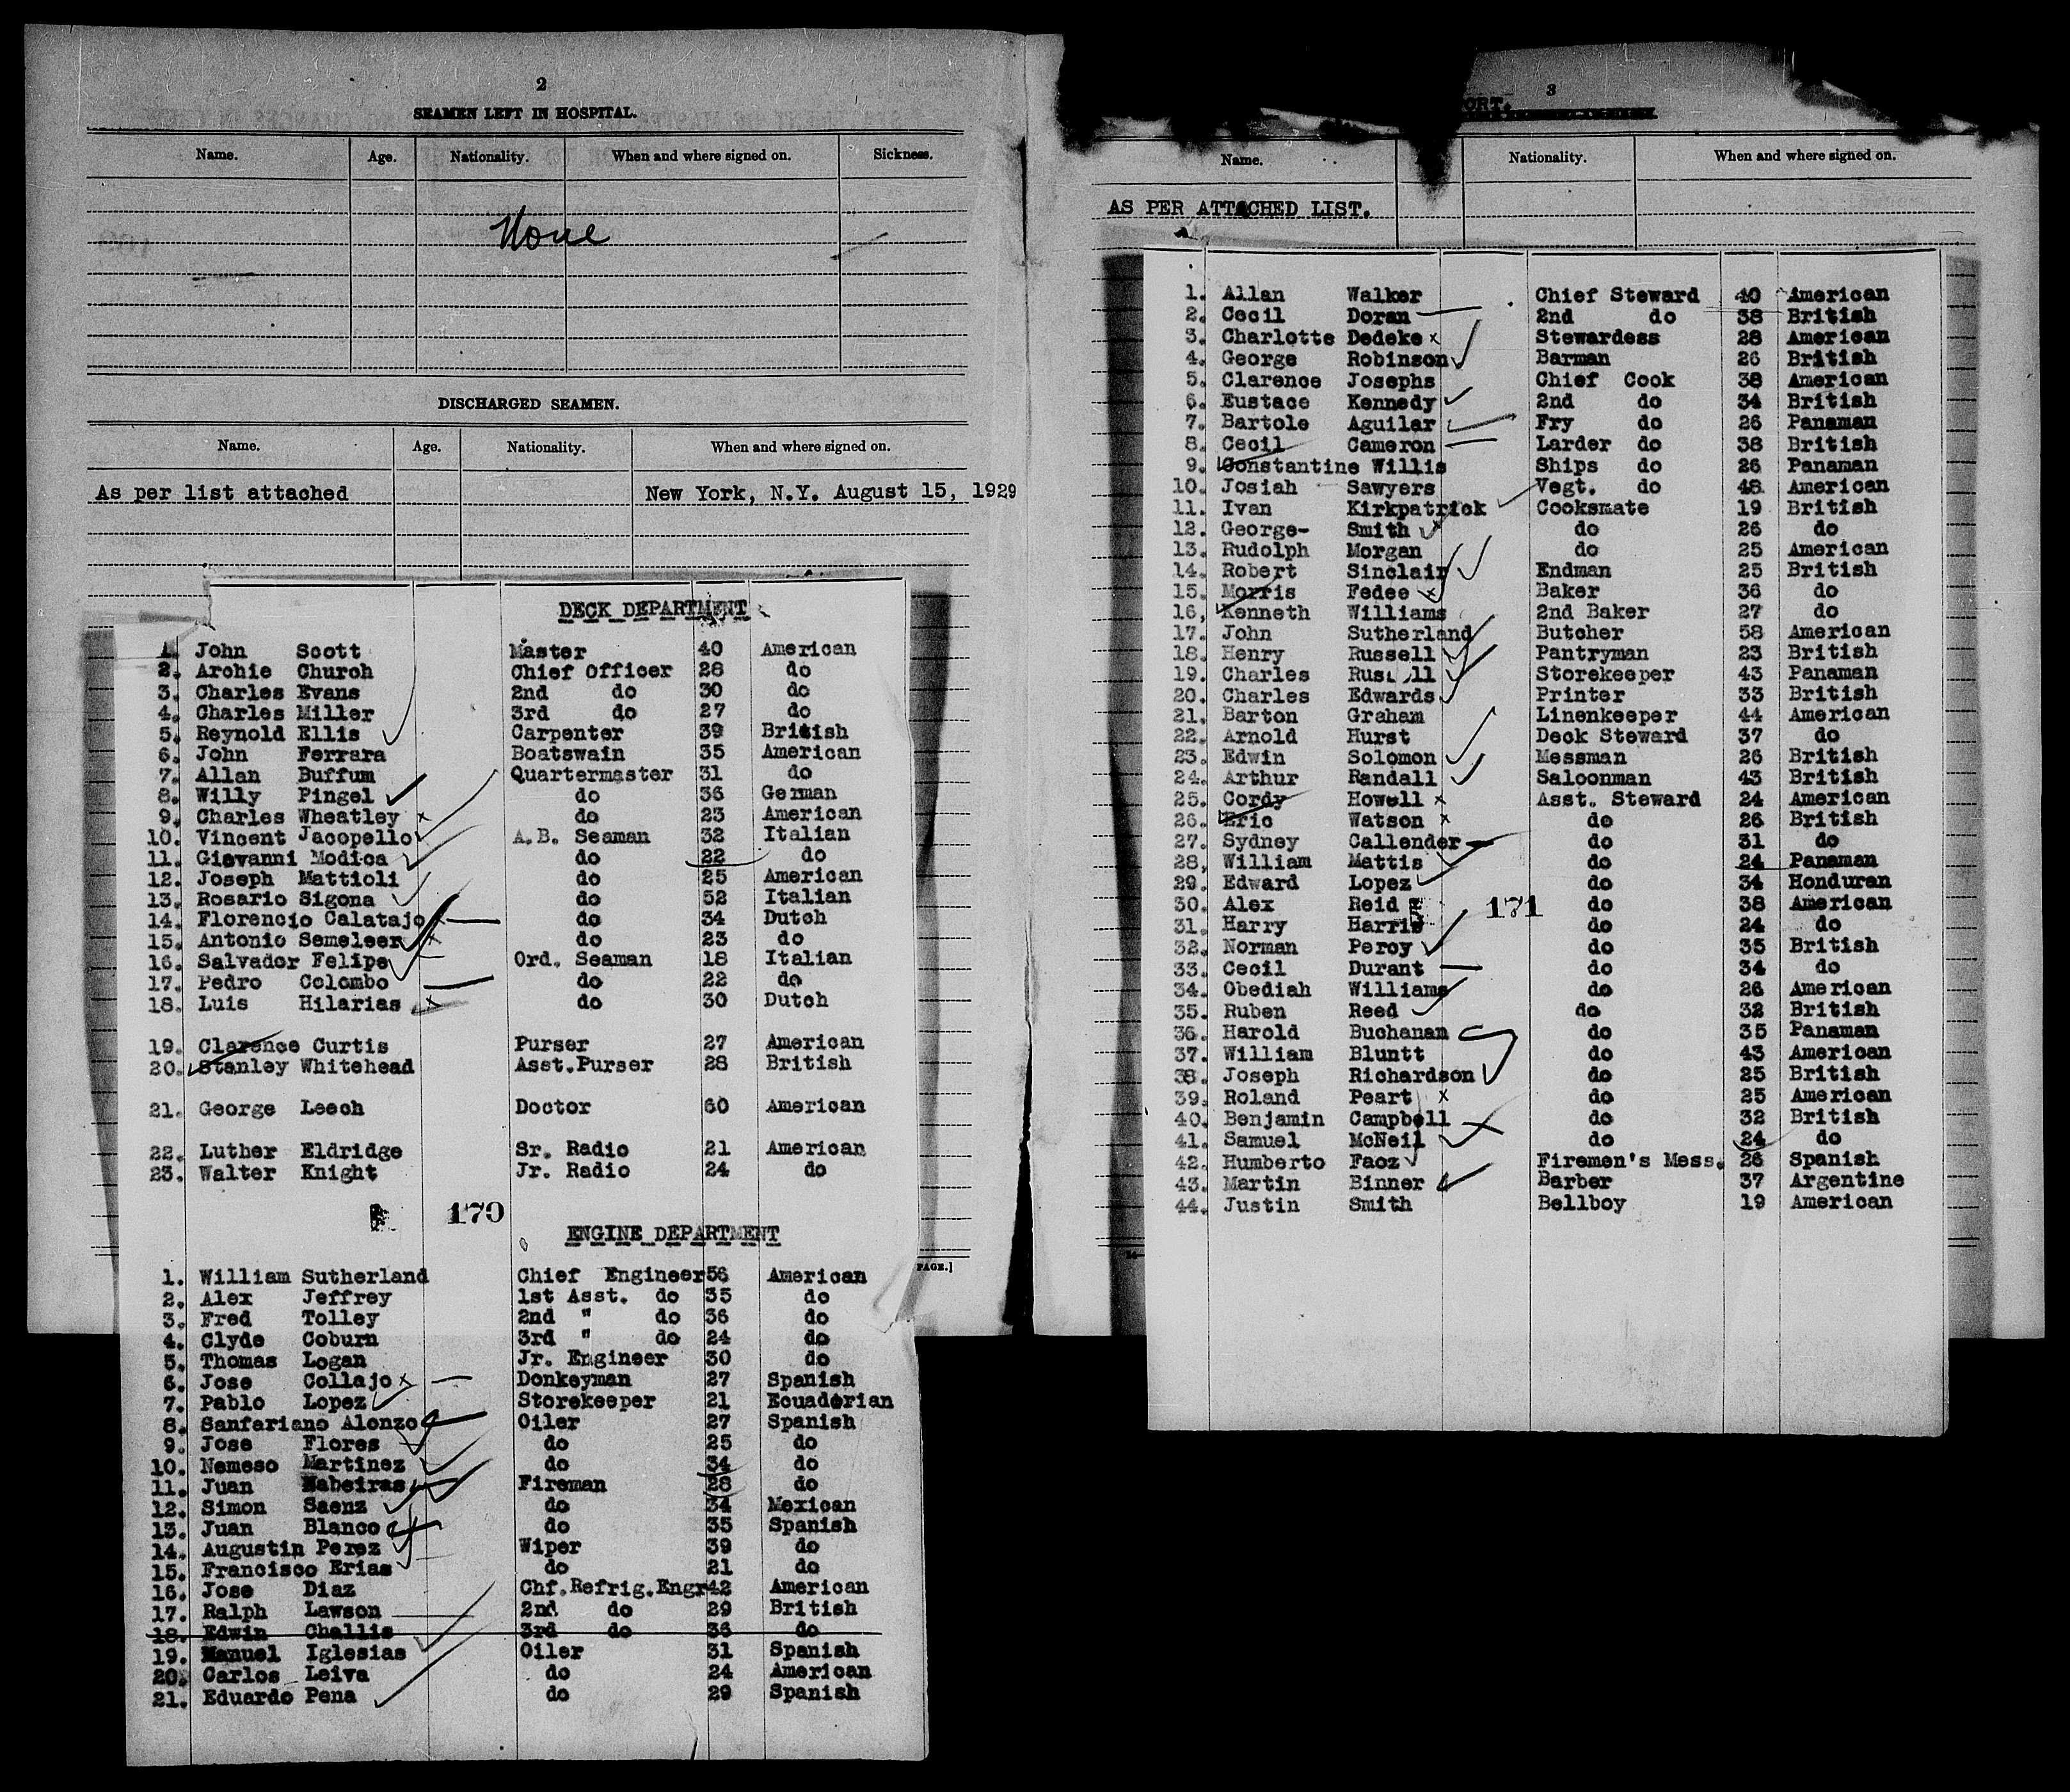 2
SEAMEN LEFT IN HOSPITAL.
Name. Age. Nationality. When and where signed on. Sickness.
None
DISCHARGED SEAMEN.
Name. Age. Nationality. When and where signed on.
As per list attached New York, N.Y. August 15, 1929
DECK DEPARTMENT
1. John Scott Master 40 American
2. Archie Church Chief Officer 28 do
3. Charles Evans 2nd do 30 do
4. Charles Miller 3rd do 27 do
5. Reynold Ellis Carpenter 39 British
6. John Ferrara Boatswain 35 American
7. Allan Buffum Quartermaster 31 do
8. Willy Pingel do 36 German
9. Charles Wheatley do 23 American
10. Vincent Jacopello A.B. Seaman 32 Italian
11. Giovanni Modica do 22 do
12. Joseph Mattioli do 25 American
13. Rosario Sigona do 52 Italian
14. Florencio Calatajo do 34 Dutch
15. Antonio Semeleer do 23 do
16. Salvador Felipe Ord. Seaman 18 Italian
17. Pedro Colombo do 22 do
18. Luis Hilarias do 30 Dutch
19. Clarence Curtis Purser 27 American
20. Stanley Whitehead Asst.Purser 28 British
21. George Leech Doctor 60 American
22. Luther Eldridge Sr. Radio 21 American
23. Walter Knight Jr. Radio 24 do
170
ENGINE DEPARTMENT
1. William Sutherland Chief Engineer 56 American
2. Alex Jeffrey 1st Asst. do 35 do
3. Fred Tolley 2nd " do 36 do
4. Clyde Coburn 3rd " do 24 do
5. Thomas Logan Jr. Engineer 30 do
6. Jose Collajo Donkeyman 27 Spanish
7. Pablo Lopez Storekeeper 21 Ecuadorian
8. Sanfariano Alonzo Oiler 27 Spanish
9. Jose Flores do 25 do
10. Nemeso Martinez do 34 do
11. Juan Nabeiras Fireman 28 do
12. Simon Saenz do 34 Mexican
13. Juan Blanco do 35 Spanish
14. Augustin Perez Wiper 39 do
15. Francisco Erias do 21 do
16. Jose Diaz Chf.Refrig.Engr 42 American
17. Ralph Lawson 2nd do 29 British
18. Edwin Challis 3rd do 36 do
19. Manuel Iglesias Oiler 31 Spanish
20. Carlos Leiva do 24 American
21. Eduardo Pena do 29 Spanish
PAGE.]
3
Name. Nationality. When and where signed on.
AS PER ATTACHED LIST.
1. Allan Walker Chief Steward 40 American
2. Cecil Doran 2nd do 38 British
3. Charlotte Dedeke Stewardess 28 American
4. George Robinson Barman 26 British
5. Clarence Josephs Chief Cook 38 American
6. Eustace Kennedy 2nd do 34 British
7. Bartole Aguilar Fry do 26 Panaman
8. Cecil Cameron Larder do 38 British
9. Constantine Willis Ships do 26 Panaman
10. Josiah Sawyers Vegt. do 48 American
11. Ivan Kirkpatrick Cooksmate 19 British
12. George- Smith do 26 do
13. Rudolph Morgan do 25 American
14. Robert Sinclair Endman 25 British
15. Morris Fedee Baker 36 do
16, Kenneth Williams 2nd Baker 27 do
17. John Sutherland Butcher 58 American
18. Henry Russell Pantryman 23 British
19. Charles Russell Storekeeper 43 Panaman
20. Charles Edwards Printer 33 British
21. Barton Graham Linenkeeper 44 American
22. Arnold Hurst Deck Steward 37 do
23. Edwin Solomon Messman 26 British
24. Arthur Randall Saloonman 43 British
25. Cordy Howell Asst. Steward 24 American
26. Eric Watson do 26 British
27. Sydney Callender do 31 do
28, William Mattis do 24 Panaman
29. Edward Lopez do 34 Honduran
30. Alex Reid do 38 American
171
31. Harry Harris do 24 do
32. Norman Percy do 35 British
33. Cecil Durant do 34 do
34. Obediah Williams do 26 American
35. Ruben Reed do 32 British
36. Harold Buchanan do 35 Panaman
37. William Bluntt do 43 American
38. Joseph Richardson do 25 British
39. Roland Peart do 25 American
40. Benjamin Campbell do 32 British
41. Samuel McNeil do 24 do
42. Humberto Faoz Firemen's Mess. 26 Spanish
43. Martin Binner Barber 37 Argentine
44. Justin Smith Bellboy 19 American